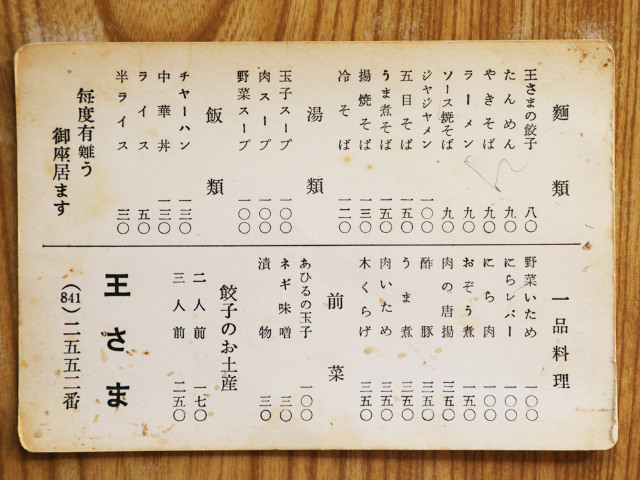 麵類
王さまの餃子 八〇
たんめん 九〇
やきそば 九〇
ラーメン 九〇
ソース焼そば 九〇
ジャジャメン 一〇〇
五目そば 一五〇
うま煮そば 一五〇
揚焼そば 一三〇
冷そば 一二〇
湯類
玉子スープ 一〇〇
肉スープ 一〇〇
野菜スープ 一〇〇
飯類
チャーハン 一三〇
中華丼 一三〇
ライス 五〇
半ライス 三〇
毎度有難う
御座居ます
一品料理
野菜いため 一〇〇
にらレバー 一〇〇
にら肉 一〇〇
おぞう煮 一五〇
肉の唐揚 三五〇
酢豚 三五〇
うま煮 三五〇
肉いため 三五〇
木くらげ 三五〇
前菜
あひるの玉子 一〇〇
ネギ味噌 三〇
漬物 三〇
餃子のお土産
二人前 一七〇
三人前 二五〇
王さま
(841)二五五二番